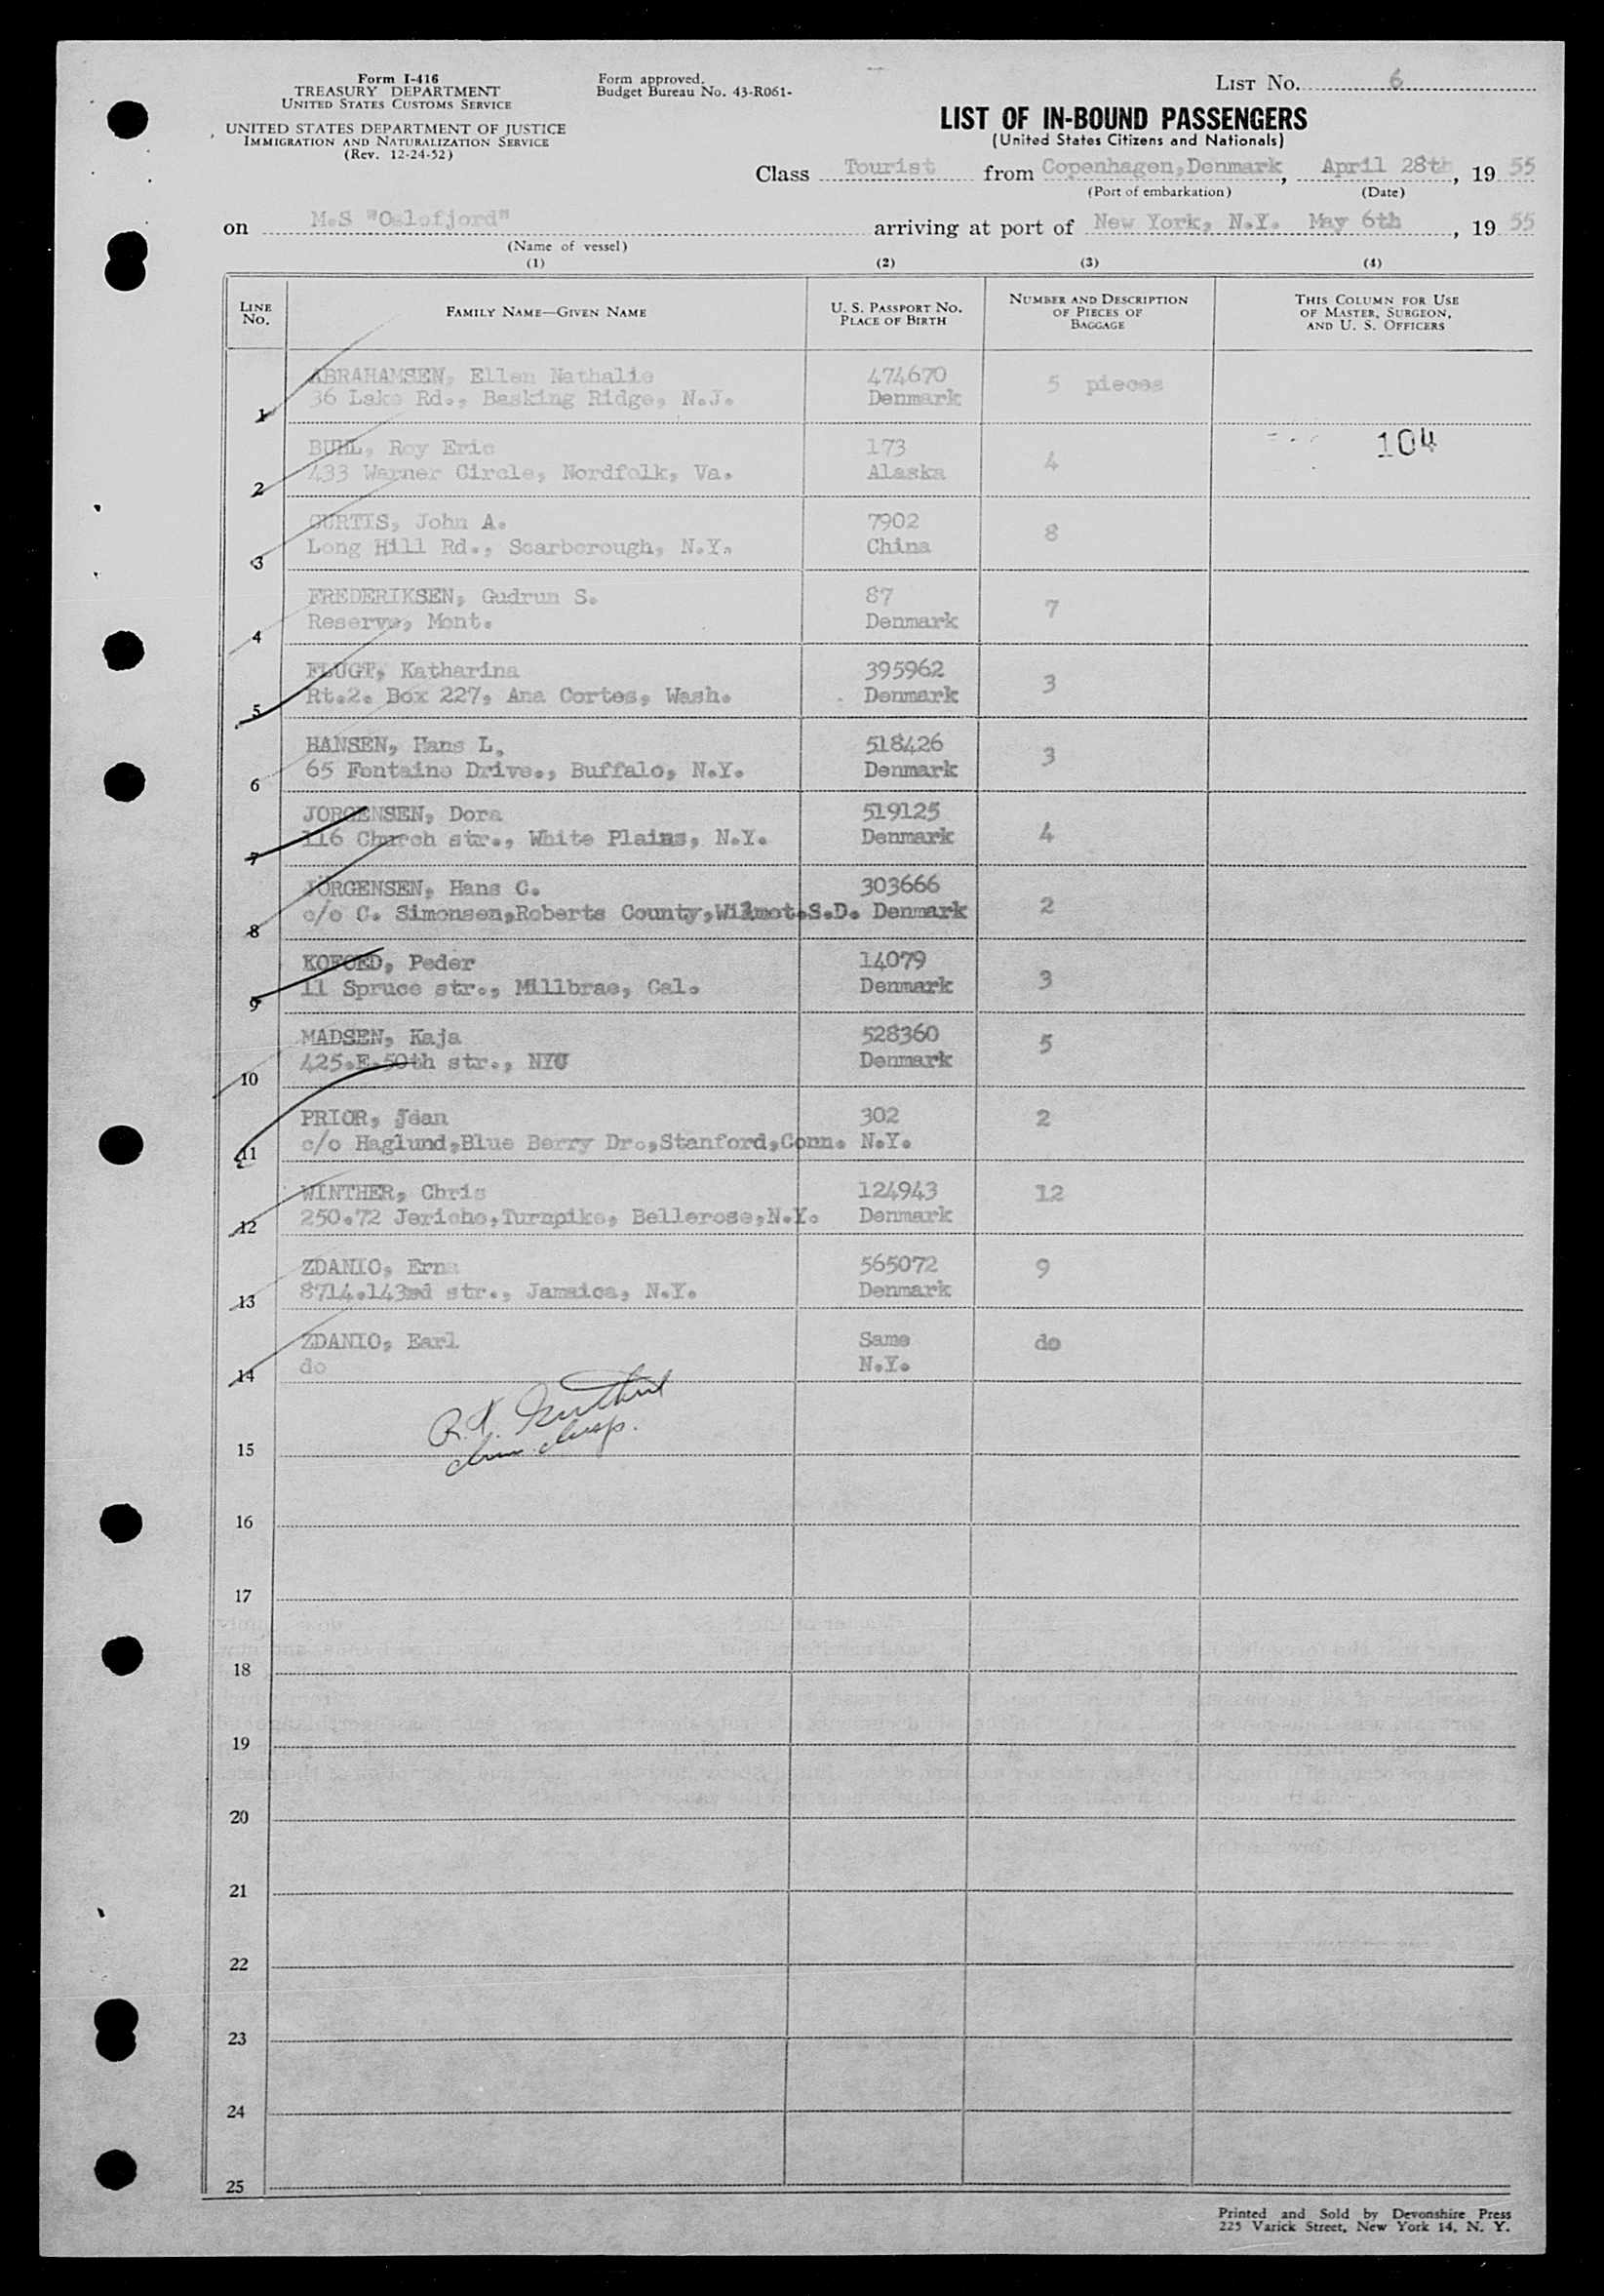 Form I-416
TREASURY DEPARTMENT
UNITED STATES CUSTOMS SERVICE
UNITED STATES DEPARTMENT OF JUSTICE
IMMIGRATION AND NATURALIZATION SERVICE
(Rev. 12-24-52)
Form approved.
Budget Bureau No. 43-R061-
LIST No. 6
LIST OF IN-BOUND PASSENGERS
(United States Citizens and Nationals)
Class Tourist from Copenhagen,Denmark, April 28th, 19 55
(Port of embarkation) (Date)
on M.S "Oslofjord" arriving at port of New York, N.Y. May 6th, 19 55
(Name of vessel)
(1) (2) (3) (4)
LINE No. FAMILY NAME—GIVEN NAME U. S. PASSPORT NO. PLACE OF BIRTH NUMBER AND DESCRIPTION OF PIECES OF BAGGAGE THIS COLUMN FOR USE OF MASTER, SURGEON, AND U. S. OFFICERS
ABRAHAMSEN, Ellen Nathalie 474670 5 pieces
1 36 Lake Rd., Basking Ridge, N.J. Denmark
BUHL, Roy Eric 173 4 104
2 433 Warner Circle, Nordfolk, Va. Alaska
CURTIS, John A. 7902 8
3 Long Hill Rd., Scarborough, N.Y. China
FREDERIKSEN, Gudrun S. 87 7
4 Reserve, Mont. Denmark
FLUGT, Katharina 395962 3
5 Rt.2. Box 227, Ana Cortes, Wash. Denmark
HANSEN, Hans L. 518426 3
6 65 Fontaine Drive., Buffalo, N.Y. Denmark
JORGENSEN, Dora 519125 4
7 116 Church str., White Plains, N.Y. Denmark
JÖRGENSEN, Hans C. 303666 2
8 c/o C. Simonsen,Roberts County,Wilmot.S.D. Denmark
KOFOED, Peder 14079 3
9 11 Spruce str., Millbrae, Cal. Denmark
MADSEN, Kaja 528360 5
10 425.E.50th str., NYC Denmark
PRIOR, Jean 302 2
11 c/o Haglund,Blue Berry Dr.,Stanford,Conn. N.Y.
WINTHER, Chris 124943 12
12 250.72 Jericho,Turnpike, Bellerose,N.Y. Denmark
ZDANIO, Erna 565072 9
13 8714.143rd str., Jamaica, N.Y. Denmark
ZDANIO, Earl Same do
14 do N.Y.
15
16
17
18
19
20
21
22
23
24
25
Printed and Sold by Devonshire Press
225 Varick Street, New York 14, N. Y.